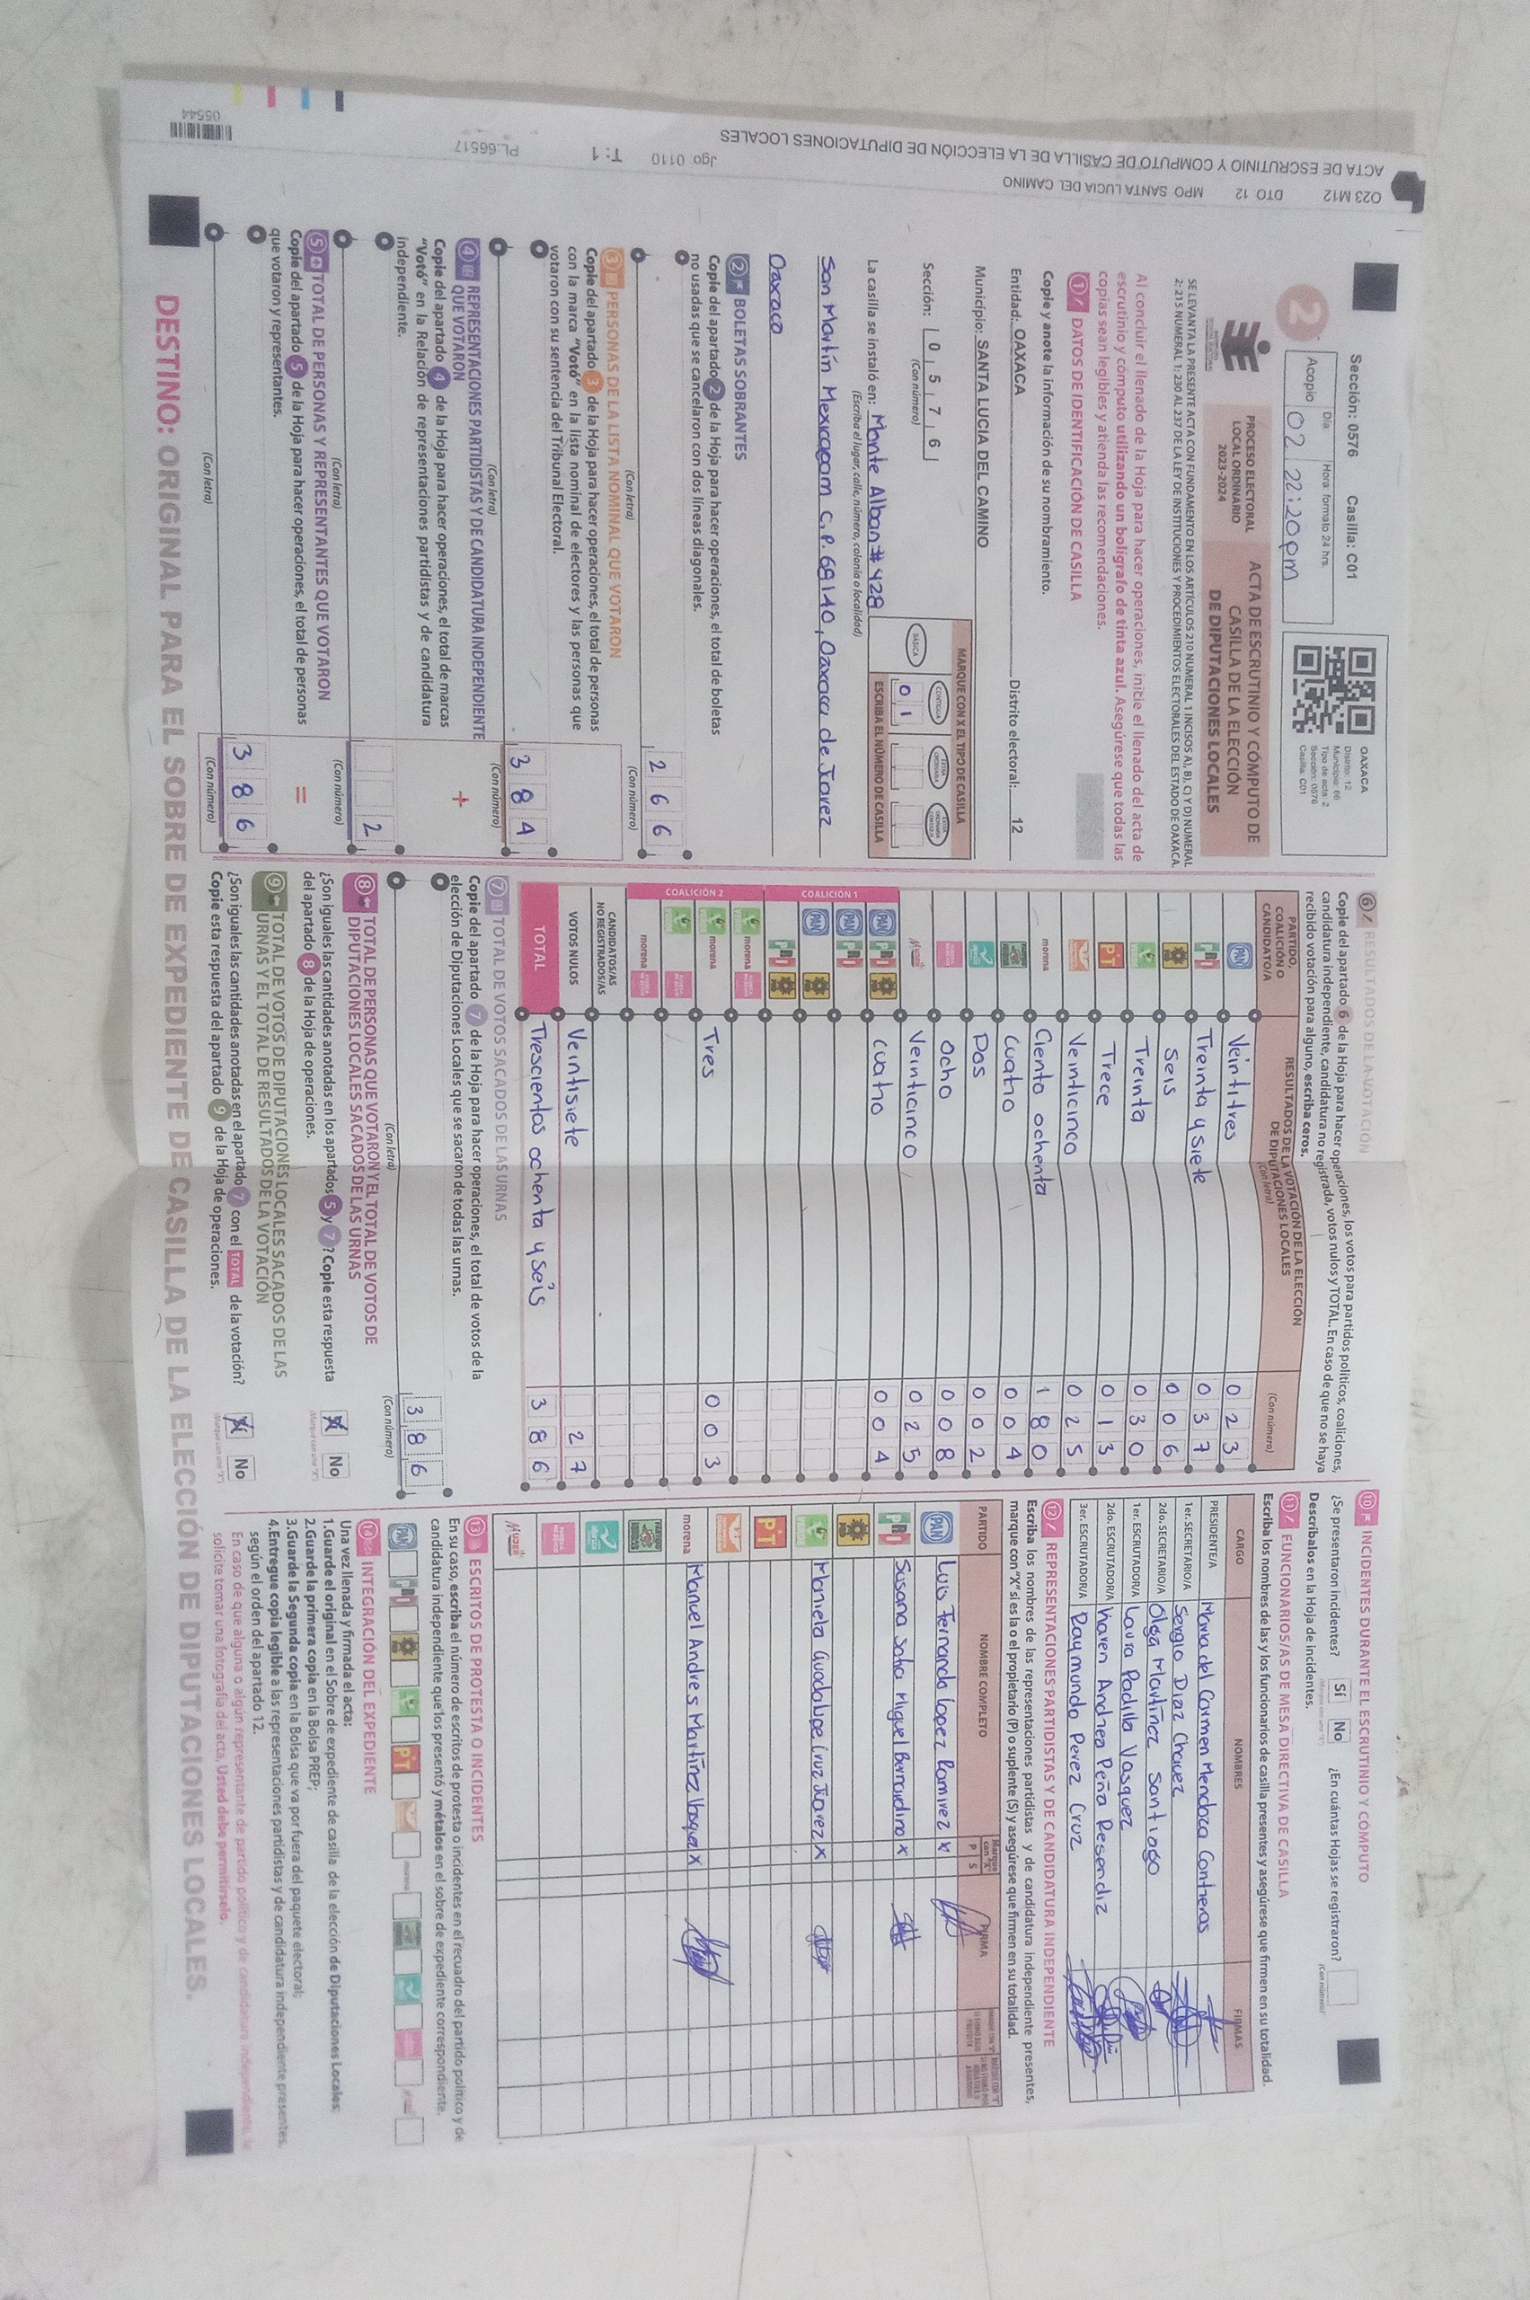 Sección: 0576 Casilla: C01
Día Hora formato 24 hrs.
Acopio 02 22:20pm
OAXACA
Distrito: 12
Municipio: 66
Tipo de acta: 2
Sección: 0576
Casilla: C01
2
PROCESO ELECTORAL
LOCAL ORDINARIO
2023-2024
ACTA DE ESCRUTINIO Y CÓMPUTO DE
CASILLA DE LA ELECCIÓN
DE DIPUTACIONES LOCALES
SE LEVANTA LA PRESENTE ACTA CON FUNDAMENTO EN LOS ARTÍCULOS 210 NUMERAL 1 INCISOS A), B), C) Y D) NUMERAL
2; 215 NUMERAL 1; 230 AL 237 DE LA LEY DE INSTITUCIONES Y PROCEDIMIENTOS ELECTORALES DEL ESTADO DE OAXACA.
Al concluir el llenado de la Hoja para hacer operaciones, inicie el llenado del acta de
escrutinio y cómputo utilizando un bolígrafo de tinta azul. Asegúrese que todas las
copias sean legibles y atienda las recomendaciones.
1 DATOS DE IDENTIFICACIÓN DE CASILLA
Copie y anote la información de su nombramiento.
Entidad: OAXACA Distrito electoral: 12
Municipio: SANTA LUCIA DEL CAMINO
Sección: 0 5 7 6
(Con número)
MARQUE CON X EL TIPO DE CASILLA
BÁSICA CONTIGUA
0 1
ESCRIBA EL NÚMERO DE CASILLA
La casilla se instaló en: Monte Alban # 428
(Escriba el lugar, calle, número, colonia o localidad)
San Martín Mexicapam C.P. 68140, Oaxaca de Juarez
Oaxaca
2 BOLETAS SOBRANTES
Copie del apartado 2 de la Hoja para hacer operaciones, el total de boletas
no usadas que se cancelaron con dos líneas diagonales.
2 6 6
(Con letra) (Con número)
3 PERSONAS DE LA LISTA NOMINAL QUE VOTARON
Copie del apartado 3 de la Hoja para hacer operaciones, el total de personas
con la marca "Votó" en la lista nominal de electores y las personas que
votaron con su sentencia del Tribunal Electoral.
3 8 4
(Con letra) (Con número)
4 REPRESENTACIONES PARTIDISTAS Y DE CANDIDATURA INDEPENDIENTE
QUE VOTARON
+
Copie del apartado 4 de la Hoja para hacer operaciones, el total de marcas
"Votó" en la Relación de representaciones partidistas y de candidatura
independiente.
2
(Con letra) (Con número)
5 TOTAL DE PERSONAS Y REPRESENTANTES QUE VOTARON
=
Copie del apartado 5 de la Hoja para hacer operaciones, el total de personas
que votaron y representantes.
3 8 6
(Con letra) (Con número)
6 RESULTADOS DE LA VOTACIÓN
Copie del apartado 6 de la Hoja para hacer operaciones, los votos para partidos políticos, coaliciones,
candidatura independiente, candidatura no registrada, votos nulos y TOTAL. En caso de que no se haya
recibido votación para alguno, escriba ceros.
PARTIDO,
COALICIÓN O
CANDIDATO/A
RESULTADOS DE LA VOTACIÓN DE LA ELECCIÓN
DE DIPUTACIONES LOCALES
(Con letra)
(Con número)
PAN Veintitres 0 2 3
PRI Treinta y siete 0 3 7
PRD seis 0 0 6
Treinta 0 3 0
PT Trece 0 1 3
Veinticinco 0 2 5
morena Ciento ochenta 1 8 0
cuatro 0 0 4
Dos 0 0 2
Ocho 0 0 8
Mujer Veinticinco 0 2 5
COALICIÓN 1
PAN PRI PRD cuatro 0 0 4
PAN PRI
PAN PRD
PRI PRD
COALICIÓN 2
morena
morena Tres 0 0 3
morena
CANDIDATOS/AS
NO REGISTRADOS/AS
VOTOS NULOS Veintisiete 2 7
TOTAL Trescientos ochenta y seis 3 8 6
7 TOTAL DE VOTOS SACADOS DE LAS URNAS
Copie del apartado 7 de la Hoja para hacer operaciones, el total de votos de la
elección de Diputaciones Locales que se sacaron de todas las urnas.
3 8 6
(Con letra) (Con número)
8 TOTAL DE PERSONAS QUE VOTARON Y EL TOTAL DE VOTOS DE
DIPUTACIONES LOCALES SACADOS DE LAS URNAS
¿Son iguales las cantidades anotadas en los apartados 5 y 7? Copie esta respuesta
del apartado 8 de la Hoja de operaciones.
Sí No
9 TOTAL DE VOTOS DE DIPUTACIONES LOCALES SACADOS DE LAS
URNAS Y EL TOTAL DE RESULTADOS DE LA VOTACIÓN
¿Son iguales las cantidades anotadas en el apartado 7 con el TOTAL de la votación?
Copie esta respuesta del apartado 9 de la Hoja de operaciones.
Sí No
10 INCIDENTES DURANTE EL ESCRUTINIO Y CÓMPUTO
¿Se presentaron incidentes? Sí No ¿En cuántas Hojas se registraron?
(Con número)
Descríbalos en la Hoja de incidentes.
11 FUNCIONARIOS/AS DE MESA DIRECTIVA DE CASILLA
Escriba los nombres de las y los funcionarios de casilla presentes y asegúrese que firmen en su totalidad.
CARGO NOMBRES FIRMAS
PRESIDENTE/A Maria del Carmen Mendoza Contreras
1er. SECRETARIO/A Sergio Diaz Chavez
2do. SECRETARIO/A Olga Martínez Santiago
1er. ESCRUTADOR/A Laura Padilla Vasquez
2do. ESCRUTADOR/A Karen Andrea Peña Resendiz
3er. ESCRUTADOR/A Raymundo Perez Cruz
12 REPRESENTACIONES PARTIDISTAS Y DE CANDIDATURA INDEPENDIENTE
Escriba los nombres de las representaciones partidistas y de candidatura independiente presentes,
marque con "X" si es la o el propietario (P) o suplente (S) y asegúrese que firmen en su totalidad.
PARTIDO NOMBRE COMPLETO P S FIRMA
PAN Luis Fernando Lopez Ramirez X
PRI Susana Sofia Miguel Bernardino X
Mariela Guadalupe Cruz Juarez X
PT
morena Manuel Andres Martinez Vasquez X
Mujer
13 ESCRITOS DE PROTESTA O INCIDENTES
En su caso, escriba el número de escritos de protesta o incidentes en el recuadro del partido político y de
candidatura independiente que los presentó y métalos en el sobre de expediente correspondiente.
PAN PRI PRD PT morena
14 INTEGRACIÓN DEL EXPEDIENTE
Una vez llenada y firmada el acta:
1.Guarde el original en el Sobre de expediente de casilla de la elección de Diputaciones Locales;
2.Guarde la primera copia en la Bolsa PREP;
3.Guarde la Segunda copia en la Bolsa que va por fuera del paquete electoral;
4.Entregue copia legible a las representaciones partidistas y de candidatura independiente presentes,
según el orden del apartado 12.
En caso de que alguna o algún representante de partido político y de candidatura independiente, le
solicite tomar una fotografía del acta, Usted debe permitírselo.
DESTINO: ORIGINAL PARA EL SOBRE DE EXPEDIENTE DE CASILLA DE LA ELECCIÓN DE DIPUTACIONES LOCALES.
O23 M12 DTO 12 MPO SANTA LUCIA DEL CAMINO
ACTA DE ESCRUTINIO Y COMPUTO DE CASILLA DE LA ELECCIÓN DE DIPUTACIONES LOCALES
Jgo 0110 T: 1 PL:66517
05544